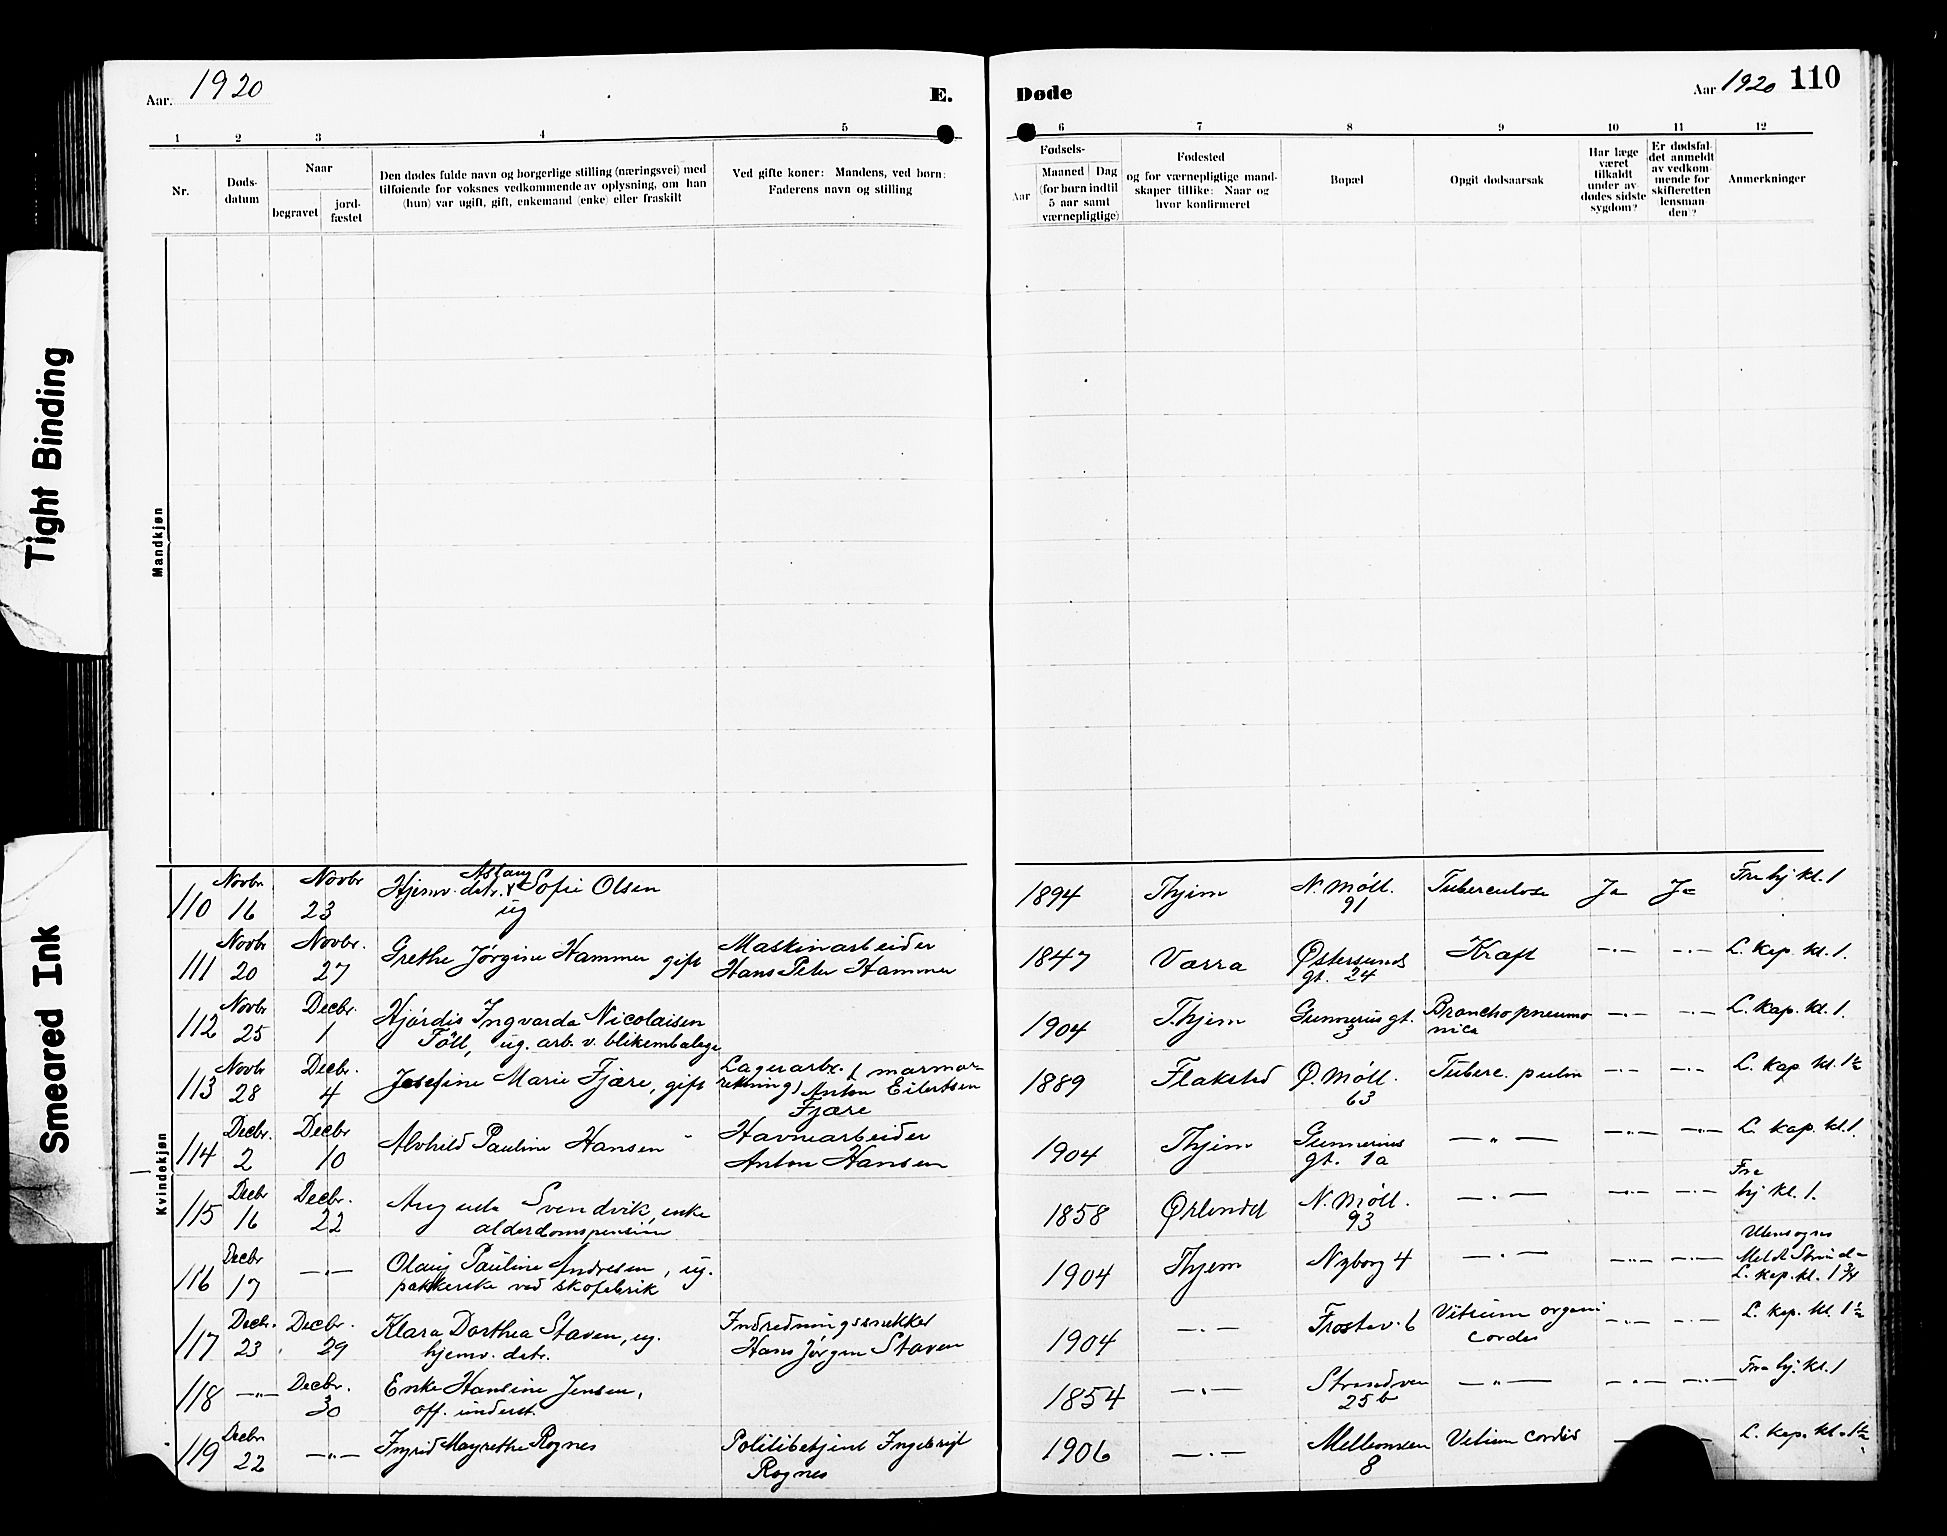 Tight Binding
Smeared Ink
Aar. 1920
E.
Døde
Aar 1920 110
1 2 3 4 5 6 7 8 9 10 11 12
Nr.
Døds-
datum
Naar
begravet
jord-
fæstet
Den dødes fulde navn og borgerlige stilling (næringsvei) med
tilføiende for voksnes vedkommende av oplysning, om han
(hun) var ugift, gift, enkemand (enke) eller fraskilt
Ved gifte koner: Mandens, ved børn:
Faderens navn og stilling
Fødsels-
Aar
Maaned Dag
(for børn indtil
5 aar samt
værnepligtige)
Fødested
og for værnepligtige mand-
skaper tillike: Naar og
hvor konfirmeret
Bopæl
Opgit dødsaarsak
Har læge
været
tilkaldt
under av-
dødes sidste
sygdom?
Er dødsfal-
det anmeldt
av vedkom-
mende for
skifteretten
lensman-
den?
Anmerkninger
Mandkjøn
Kvindekjøn
110 Novbr 16 Novbr 23 Hjemv. datr. Aslaug Sofie Olsen
ug
1894 Thjem N. Möll. 91 Tuberculose Ja Ja Fra hj kl. 1
111 Novbr 20 Novbr. 27 Grethe Jørgine Hammer gift
Maskinarbeider
Hans Peter Hammer
1847 Værra Østersunds gt. 24 Kraft -"- -"- L. kap. kl. 1.
112 Novbr 25 Decbr. 1 Hjördis Ingvarda Nicolaisen
Föll, ug. arb. v. blikembalage
1904 Thjem Gunnerius gt. 3 Bronchopneumo
nica -"- -"- L. kap. kl. 1.
113 Novbr 28 Decbr. 4 Josefine Marie Fjære, gift
Lagerarbr. (marmor-
retning) Anton Eilertsen
Fjære
1889 Flakstad Ø. Möll. 63 Tuberc. pulm -"- -"- L. kap. kl. 1½
114 Decbr. 2 Decbr 10 Alvhild Pauline Hansen
Havnearbeider
Anton Hansen
1904 Thjem Gunnerius gt. 1a -"- -"- -"- L. kap. kl. 1.
115 Decbr 16 Decbr. 22 Augusta Svendvik, enke
alderdomspension
1858 Ørlandet N. Möll. 93 -"- -"- -"- Fra
hj kl. 1.
116 Decbr 17 -"- Olaug Pauline Andresen, ug.
pakkerske ved skofabrik
1904 Thjem Nyborg 4 -"- -"- -"- Utensogns
Meldt Strinda
L. kap. kl. 1¾
117 Decbr. 23 Decbr. 29 Klara Dorthea Staven, ug.
hjemv. datr.
Indredningssnekker
Hans Jørgen Staven
1904 -"- Frostav. 6 Vitium organi
cordis -"- -"- L. kap. kl. 1½
118 -"- Decbr. 30 Enke Hansine Jensen,
off. underst.
1854 -"- Strandvei 25b -"- -"- -"- Fra hj. kl. 1
119 Decbr 22 -"- Ingrid Margrethe Rognes
Politibetjent Ingebrigt
Rognes
1906 -"- Mellomveien 8 Vitium cordis L. kap. kl. 1½